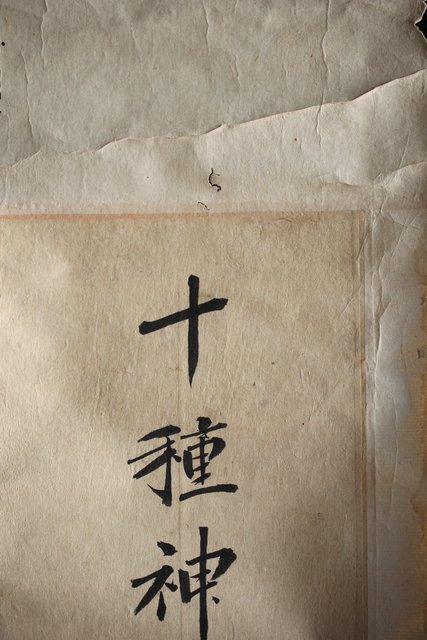 十種神